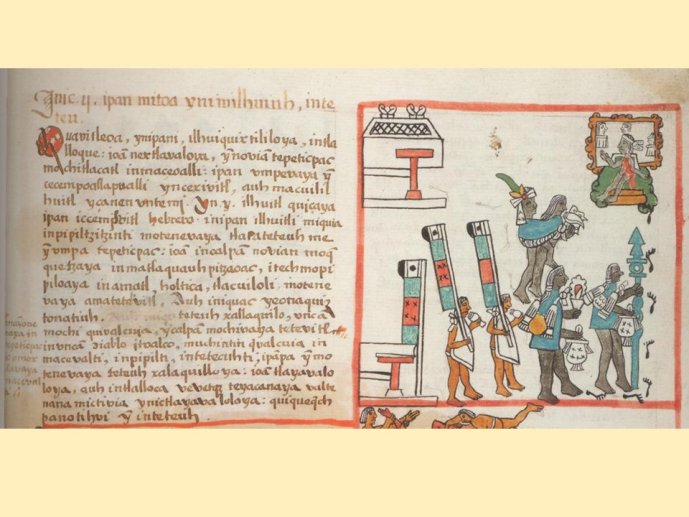 Inic .ij. ipan mitoa yn imilhuiuh, inte
teu.
Quavitleoa, ynipani, ilhuiquixtililoya, intla
lloque: ioã nextlavaloya, ỹ novia tepeticpac
mochitlacatl inmaceoalli: ipan umpevaya ỹ
cecempoallapualli yncexivitl, auh macuilil
huitl ycanen untemi. yn .y. ilhuitl quiçaya
ipan hebrero. inipan ilhuitli miquia
inpipiltzitzinti motenevaya tlacateteuh me
ỹ umpa tepeticpac: ioã incalpã novian moq̃
quetzaya inmatlaquauh pitzaoac, itechmopi
piloaya inamatl, holtica, tlacuiloli: motene
vaya amatetevitl. Auh iniquac yeotiaqui,
tonatiuh. teteuh xallaquilo, yncã
mochi quivalcuia, ycalpan mochivaya tetevitl
inyncã diablo itoalco, muchintin qualcuia in
macevalti, inpipilti, intetecuhti; ipãpa ỹ mo
tenevaya teteuh xalaquilloya: ioã tlayavalo
loya, auh intlalloca vevetq̃ teyacanaya valte
nana mictivia ynictlayavaloloya: quiqueq̃ch
panotihui ỹ inteteuh.